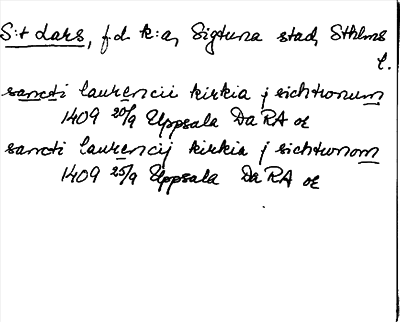 S:t Lars, f.d. k:a, Sigtuna stad, Sthlms
l.
sancti laurencii kirkia j sichtronum
1409 20/9 Uppsala DaRA or
sancti laurencij kirkia j sichtwnom
1409 25/9 Uppsala DaRA or